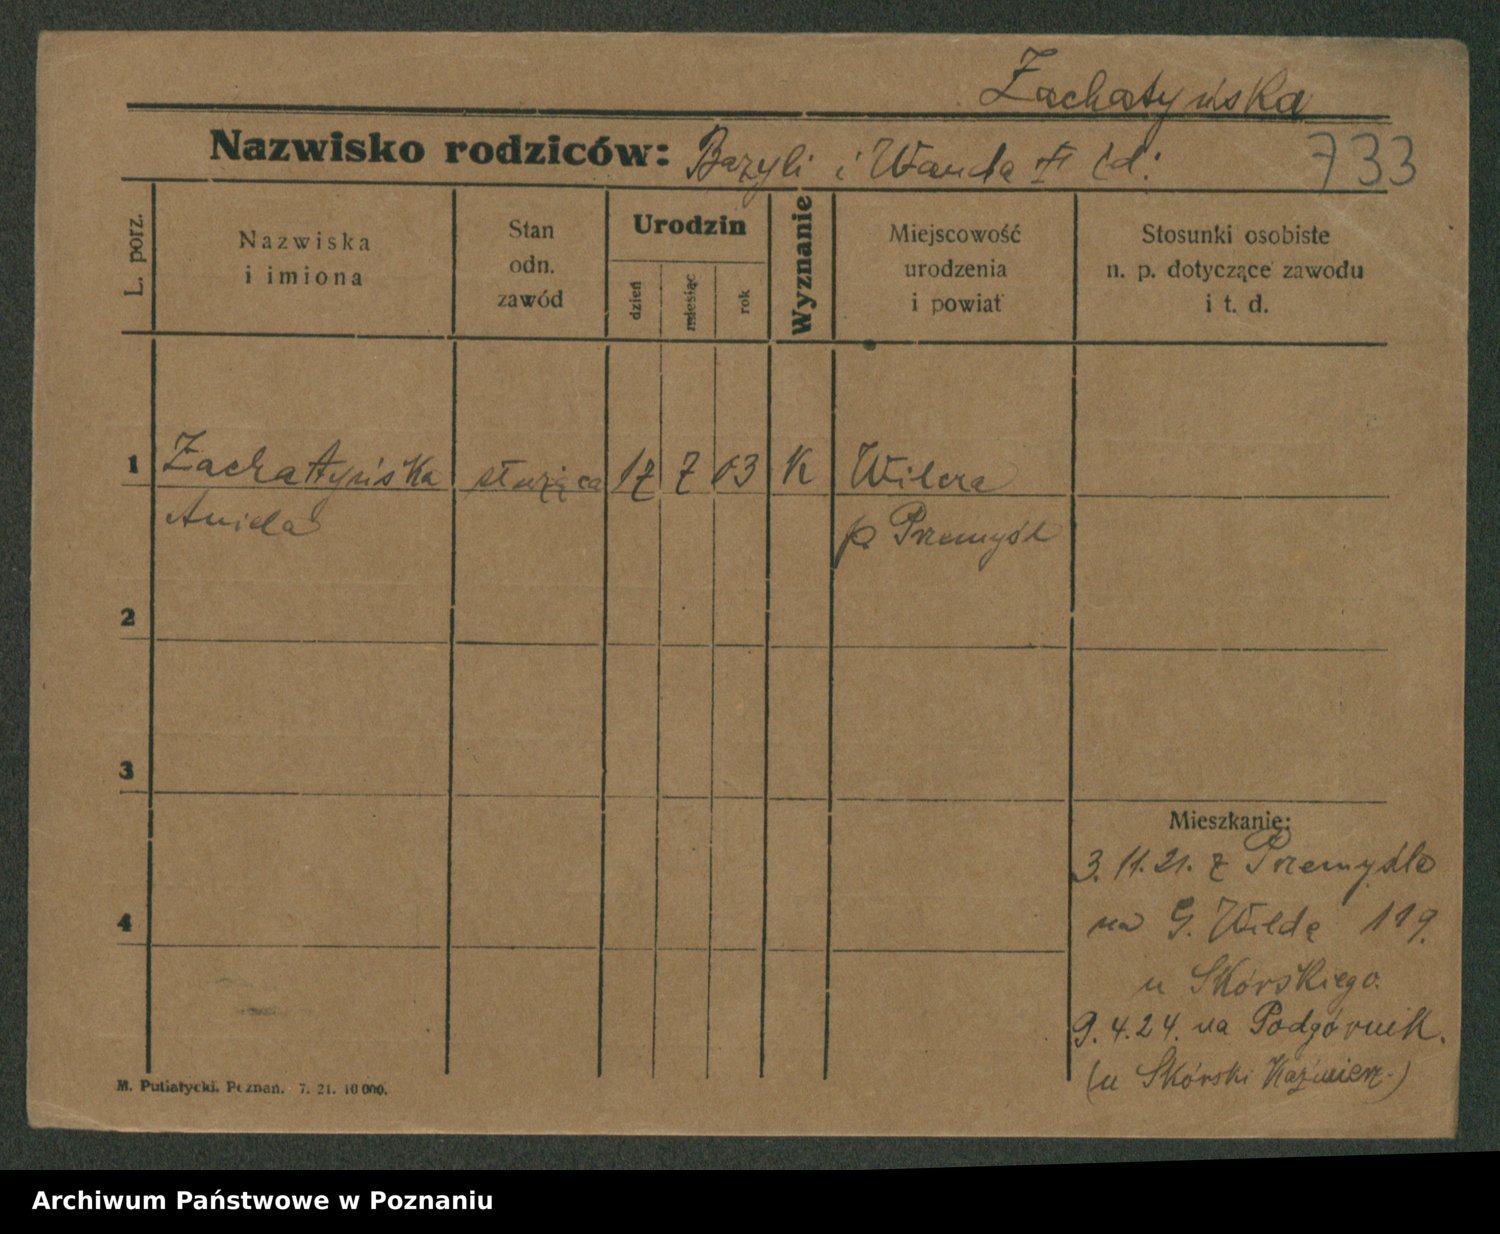 Zachatyńska
Nazwisko rodziców: Bazyli i Wanda
733
L. porz.
Nazwiska
i imiona
Stan
odn.
zawód
Urodzin
dzień
miesiąc
rok
Wyznanie
Miejscowość
urodzenia
i powiat
Stosunki osobiste
n. p. dotyczące zawodu
i t. d.
1 Zachatyńska służąca 17 7 03 K Wilcza
Aniela p. Przemyśl
2
3
4
Mieszkanie:
3. 11. 21. z Przemyśla
na G. Wildę 119.
u Skórskiego.
9. 4. 24. na Podgórnik.
(u Skórski Kaźmierz.)
M. Putiatycki, Poznań. 7. 21. 10 000.
Archiwum Państwowe w Poznaniu